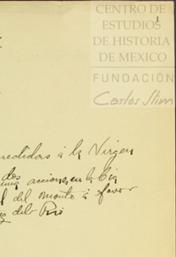 CENTRO DE
ESTUDIOS
DE HISTORIA
DE MEXICO
FUNDACIÓN
Carlos Slim
1
medidas á la Virgen
dos
acciones, en la Cía
del Monte á favor
del Pris